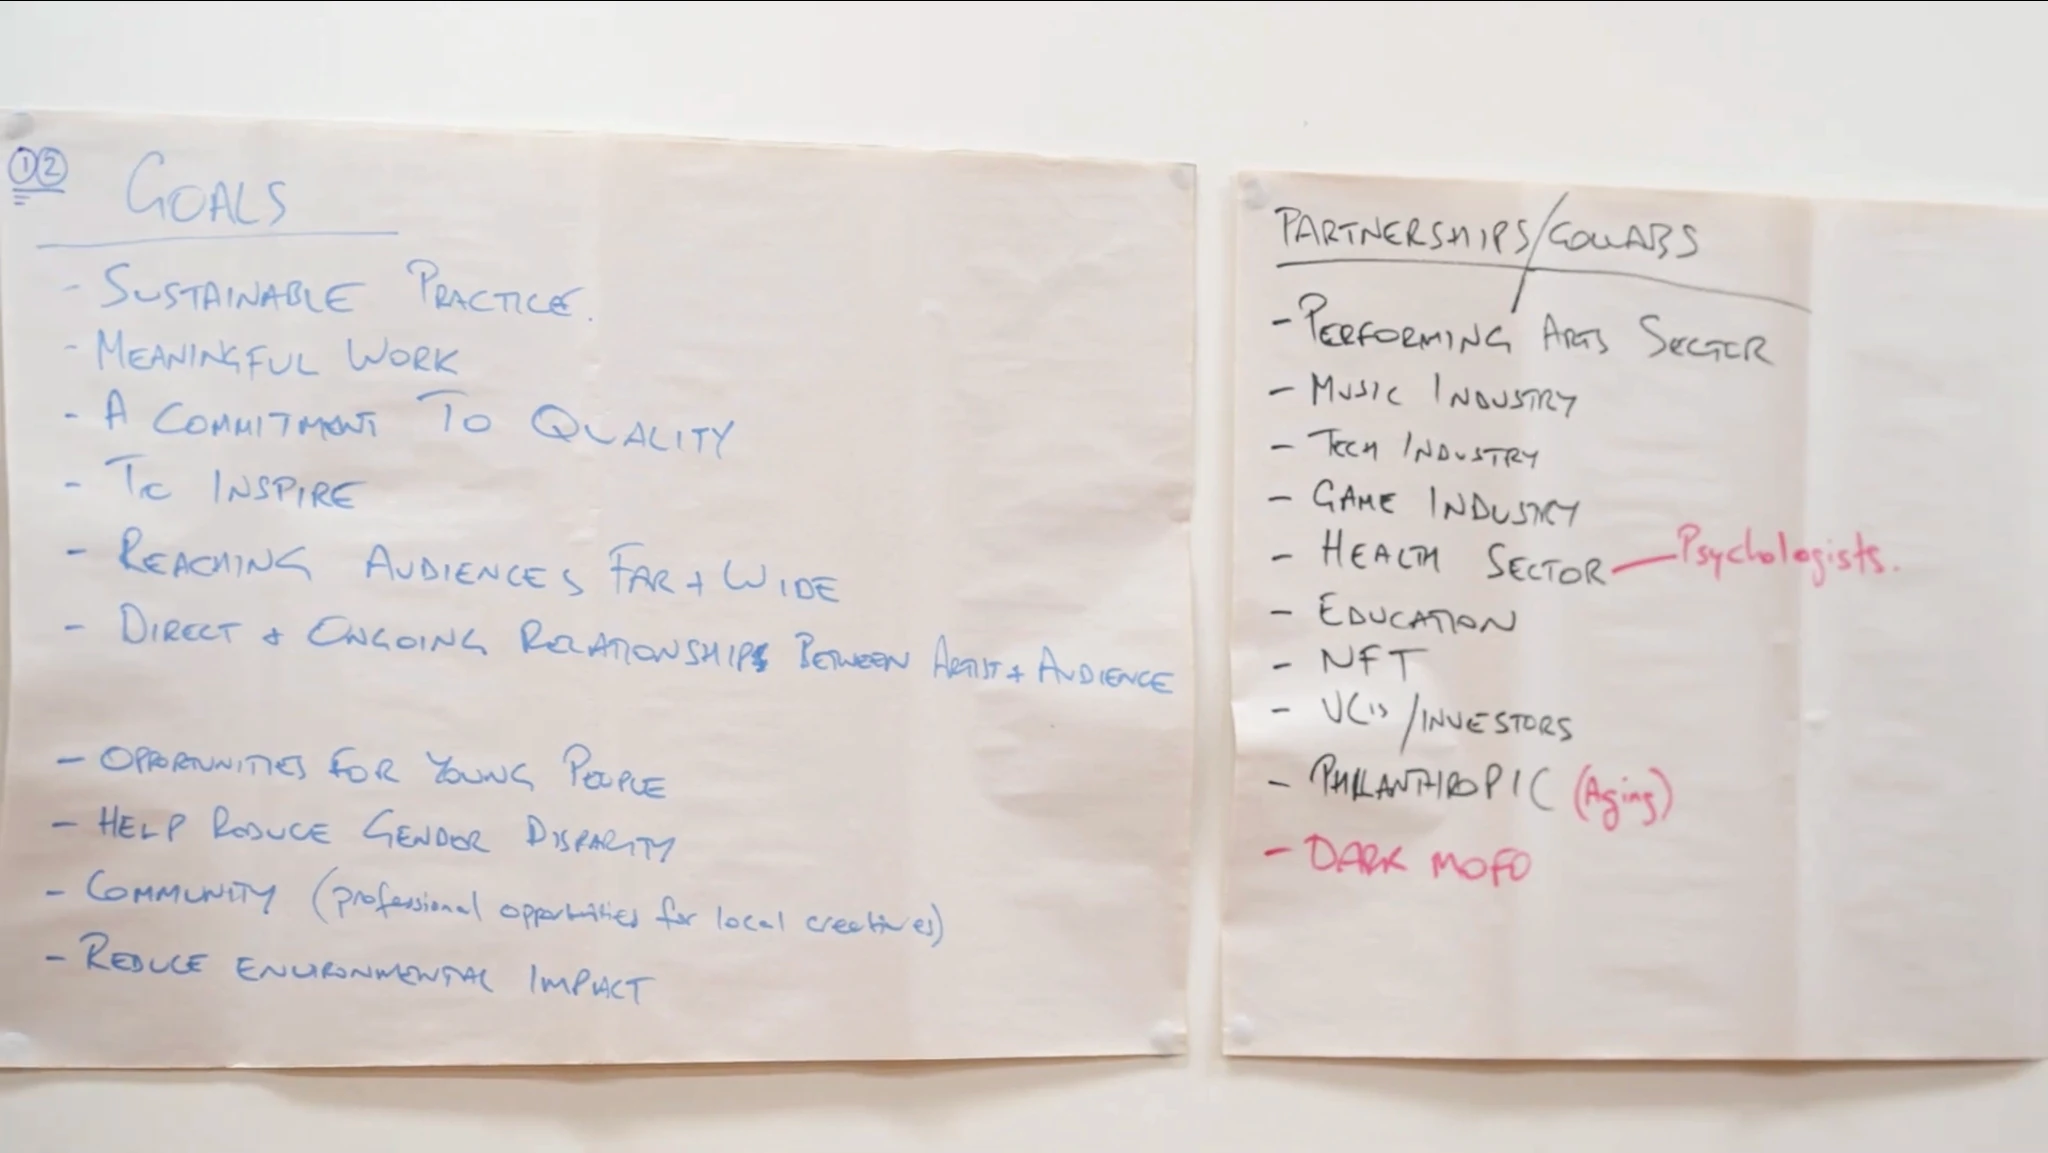 ①②
GOALS
- SUSTAINABLE PRACTICE.
- MEANINGFUL WORK
- A COMMITMENT TO QUALITY
- TO INSPIRE
- REACHING AUDIENCES FAR + WIDE
- DIRECT + ONGOING RELATIONSHIPS BETWEEN ARTIST + AUDIENCE
- OPPORTUNITIES FOR YOUNG PEOPLE
- HELP REDUCE GENDER DISPARITY
- COMMUNITY (professional opportunities for local creatives)
- REDUCE ENVIRONMENTAL IMPACT
PARTNERSHIPS/COLLABS
- PERFORMING ARTS SECTOR
- MUSIC INDUSTRY
- TECH INDUSTRY
- GAME INDUSTRY
- HEALTH SECTOR — Psychologists.
- EDUCATION
- NFT
- VC's/INVESTORS
- PHILANTHROPIC (Aging)
- DARK MOFO